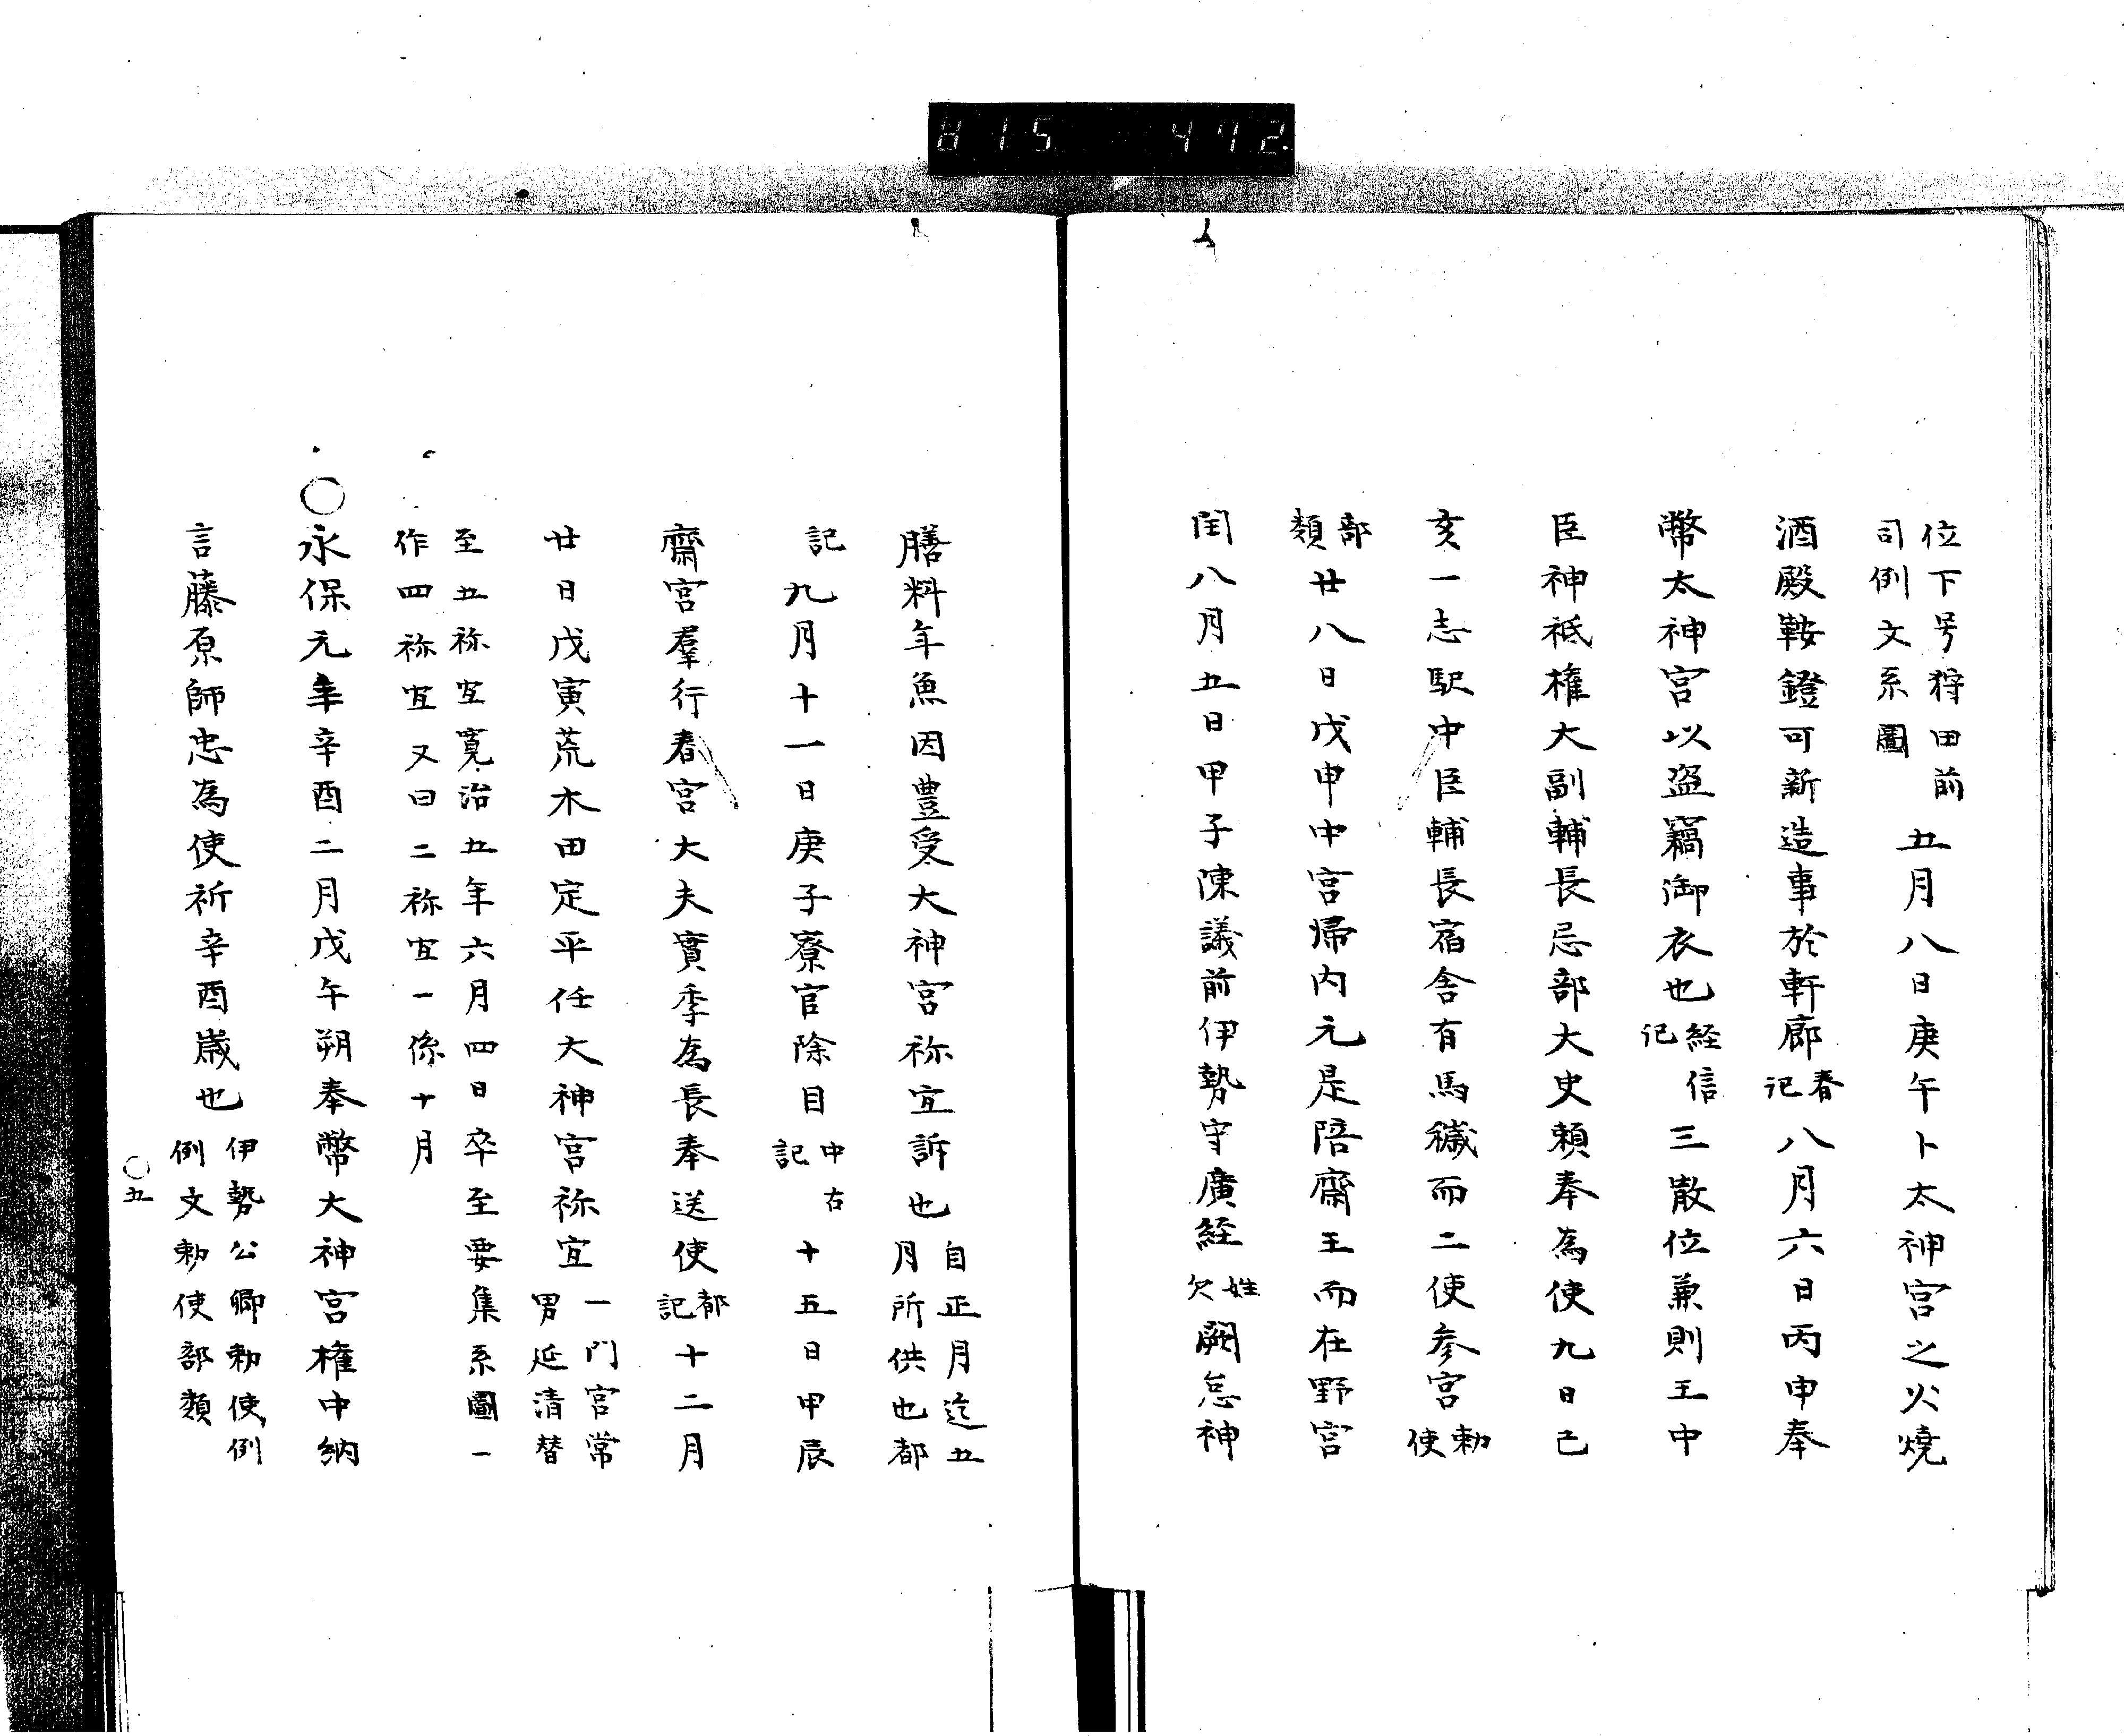 815 472
位下号狩田前
司例文系圖
五月八日庚午卜太神宮之火燒
酒殿鞍鐙可新造事於軒廊
春
記
八月六日丙申奉
幣太神宮以盗竊御衣也
経信
記
三散位兼則王中
臣神祇権大副輔長忌部大史頼奉為使九日己
亥一志駅中臣輔長宿舎有馬穢而二使参宮
勅
使
部
類
廿八日戊申中宮帰内元是陪齋王而在野宮
閏八月五日甲子陳議前伊勢守廣経
姓
欠
闕怠神
膳料年魚因豊受大神宮祢宜訴也
自正月迄五
月所供也都
記
九月十一日庚子寮官除目
中右
記
十五日甲辰
齋宮羣行春宮大夫實季為長奉送使
都
記
十二月
廿日戊寅荒木田定平任大神宮祢宜
一門宮常
男延清替
至五祢宜寛治五年六月四日卒至要集系圖一
作四祢宜又曰二祢宜一係十月
○永保元年辛酉二月戊午朔奉幣大神宮権中納
言藤原師忠為使祈辛酉歳也
伊勢公卿勅使例
例文勅使部類
○五